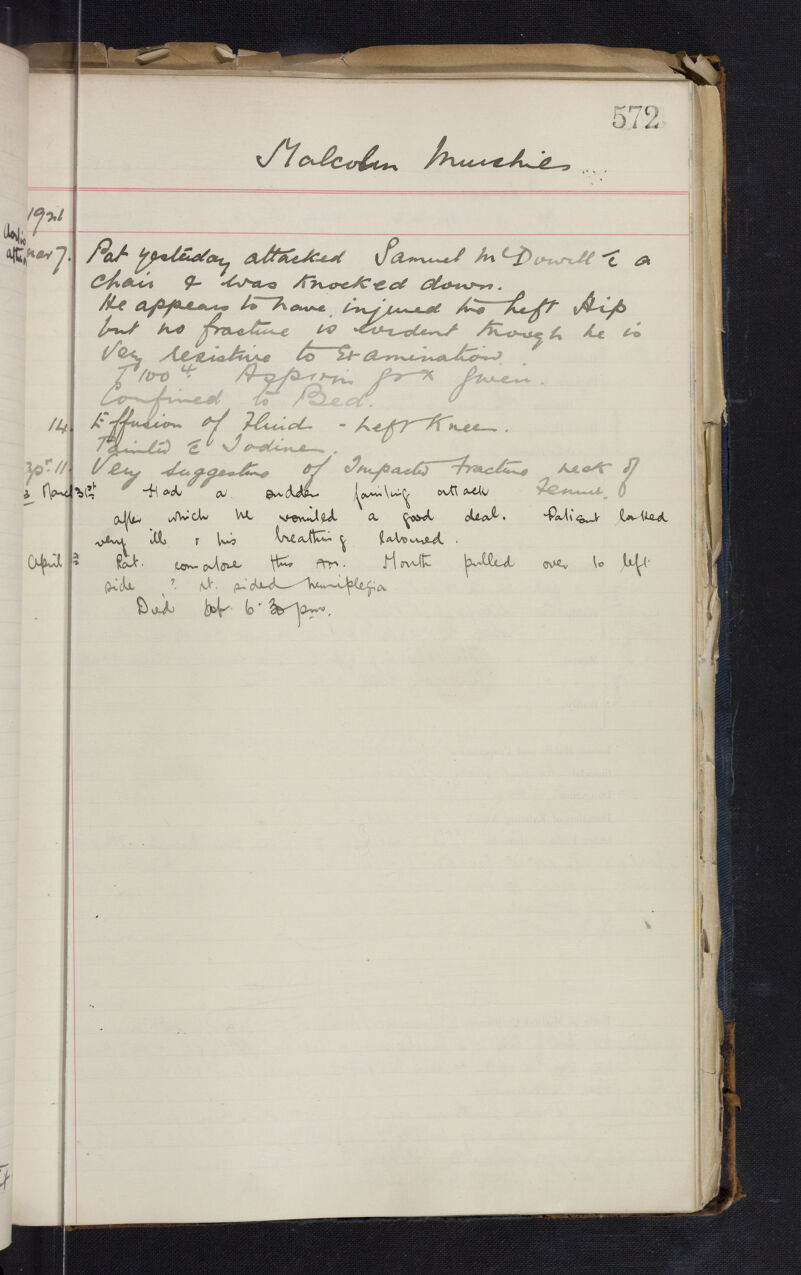 572
Malcolm Murchies
192
Mar 7. Pat yesterday attacked Samuel McDowell c̄ a
chair & was knocked down.
He appears to have injured his Left Hip
but no fracture is evident though he is
Very resistive to Examination.
T 100.4. Aspirin grx given.
Confined to Bed.
14. Effusion of Fluid - Left Knee.
Painted c̄ Iodine.
11. Very suggestive of Impacted fracture neck of
Femur.
March 31st Had a sudden fainting attack
after which he vomited a good deal. Patient looked
very ill & his breathing laboured.
April Pat. comatose this am. Mouth pulled over to left
side ? rt. sided hemiplegia
Died 6.30 pm.